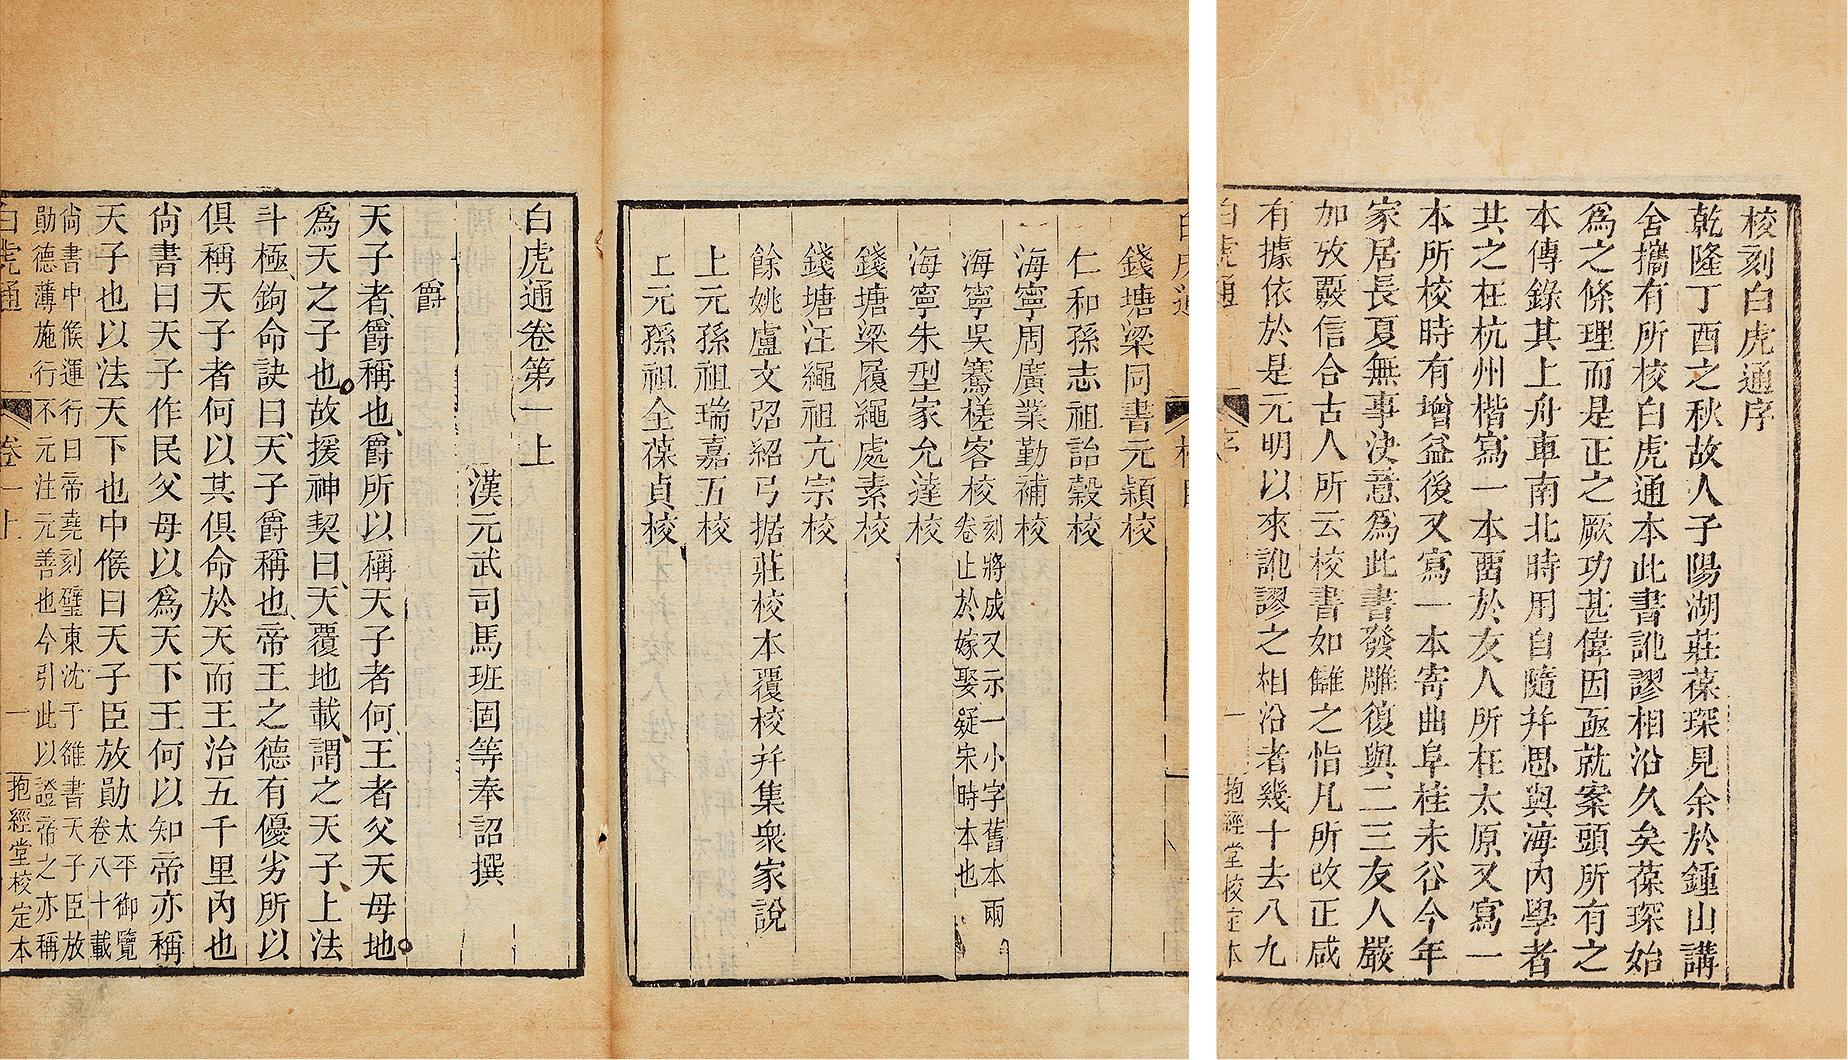 校刻白虎通序
乾隆丁酉之秋故人子陽湖莊葆琛見余於鍾山講
舍攜有所校白虎通本此書訛謬相沿久矣葆琛始
爲之條理而是正之厥功甚偉因亟就案頭所有之
本傳錄其上舟車南北時用自隨并思與海內學者
共之在杭州楷寫一本畱於友人所在太原又寫一
本所校時有增益後又寫一本寄曲阜桂未谷今年
家居長夏無事決意爲此書發雕復與二三友人嚴
加攷覈信合古人所云校書如讎之恉凡所改正咸
有據依於是元明以來訛謬之相沿者幾十去八九
白虎通
序
一
抱經堂校定本
白虎通
校目
錢塘梁同書元穎校
仁和孫志祖詒穀校
海寧周廣業勤補校
海寧吳騫槎客校 刻將成又示一小字舊本兩
卷止於嫁娶疑宋時本也
海寧朱型家允達校
錢塘梁履繩處素校
錢塘汪繩祖亢宗校
餘姚盧文弨紹弓据莊校本覆校并集衆家說
上元孫祖瑞嘉五校
上元孫祖全葆貞校
白虎通卷第一上
漢元武司馬班固等奉詔撰
爵
天子者爵稱也爵所以稱天子者何王者父天母地
爲天之子也故援神契曰天覆地載謂之天子上法
斗極鉤命訣曰天子爵稱也帝王之德有優劣所以
俱稱天子者何以其俱命於天而王治五千里內也
尙書曰天子作民父母以爲天下王何以知帝亦稱
天子也以法天下也中候曰天子臣放勛 太平御覽
卷八十載
尙書中候運行曰帝堯刻璧東沈于雒書天子臣放
勛德薄施行不元注元善也今引此以證帝之亦稱
白虎通
卷一上
一
抱經堂校定本